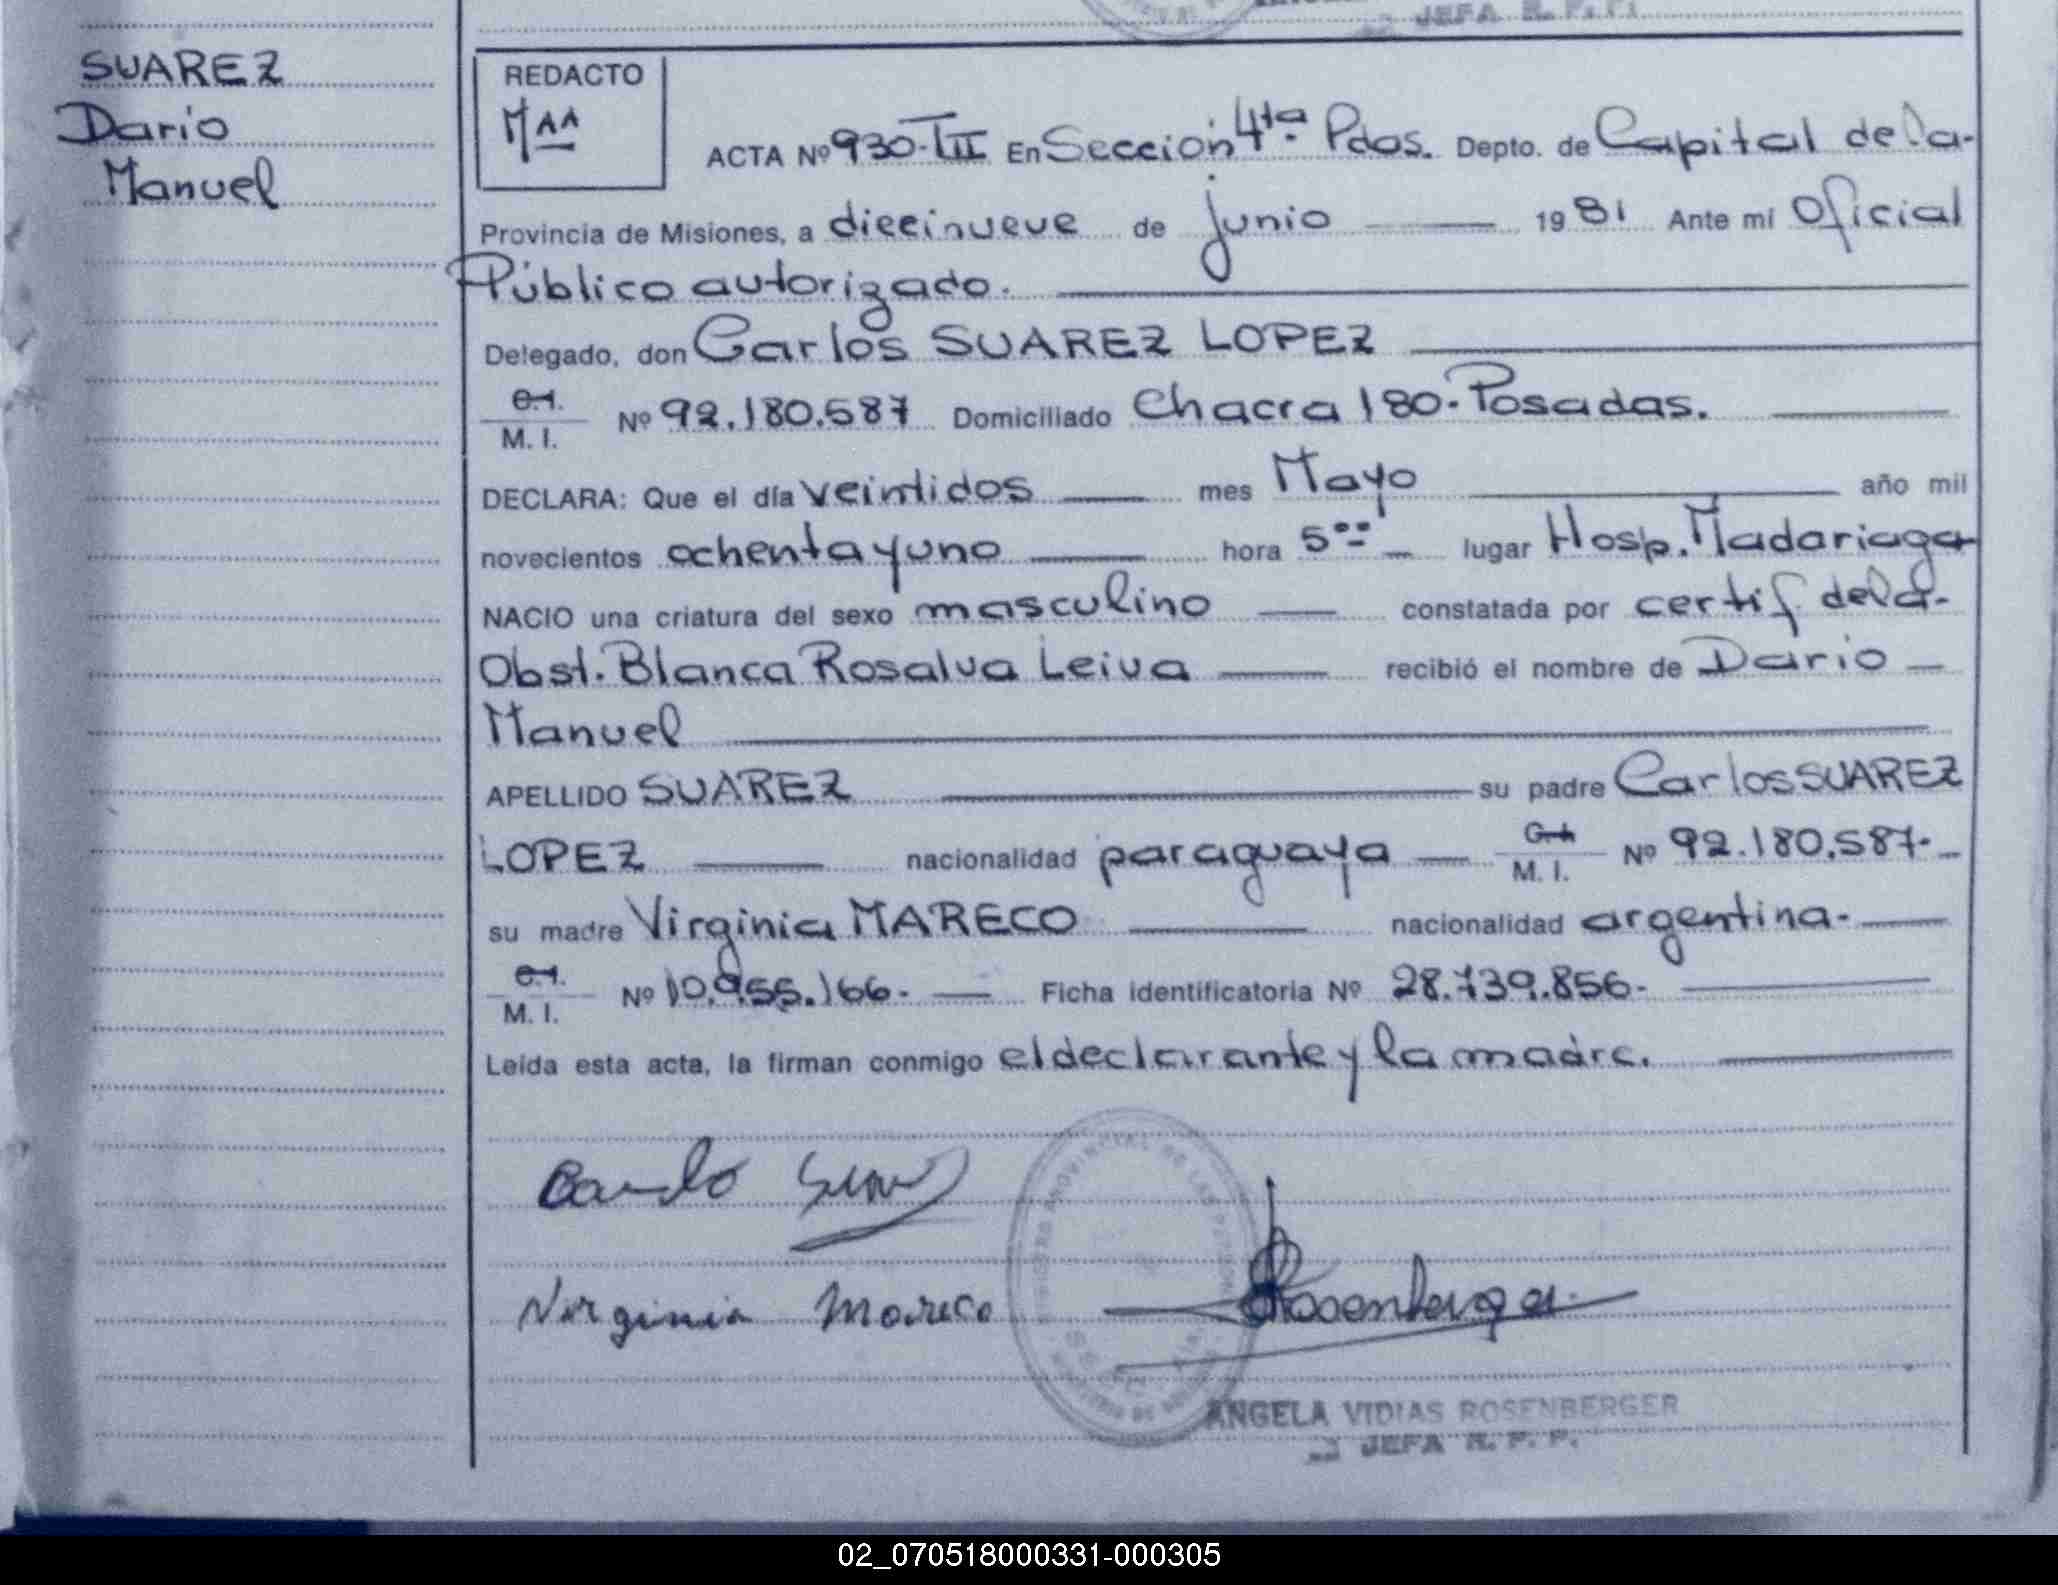 JEFA R. P. P.
SUAREZ
Dario
Manuel
REDACTO
MAA
ACTA Nº 930-TIII En Sección 4ta. Pdas. Depto. de Capital de la-
Provincia de Misiones, a diecinueve de junio 1981 Ante mí Oficial
Público autorizado.
Delegado, don Carlos SUAREZ LOPEZ
C.I.
M. I. Nº 92.180.587 Domiciliado Chacra 180-Posadas.
DECLARA: Que el día veintidos mes Mayo año mil
novecientos ochenta y uno hora 5 lugar Hosp. Madariaga
NACIO una criatura del sexo masculino constatada por certif. de la-
Obst. Blanca Rosalva Leiva recibió el nombre de Dario
Manuel
APELLIDO SUAREZ su padre Carlos SUAREZ
LOPEZ nacionalidad paraguaya C.I. M. I. Nº 92.180.587.-
su madre Virginia MARECO nacionalidad argentina.-
C.I.
M. I. Nº 10.955.166.- Ficha identificatoria Nº 28.739.856.-
Leída esta acta, la firman conmigo el declarante y la madre.
Virginia Mareco
Rosenberger
ANGELA VIDIAS ROSENBERGER
JEFA R. P. P.
02_070518000331-000305